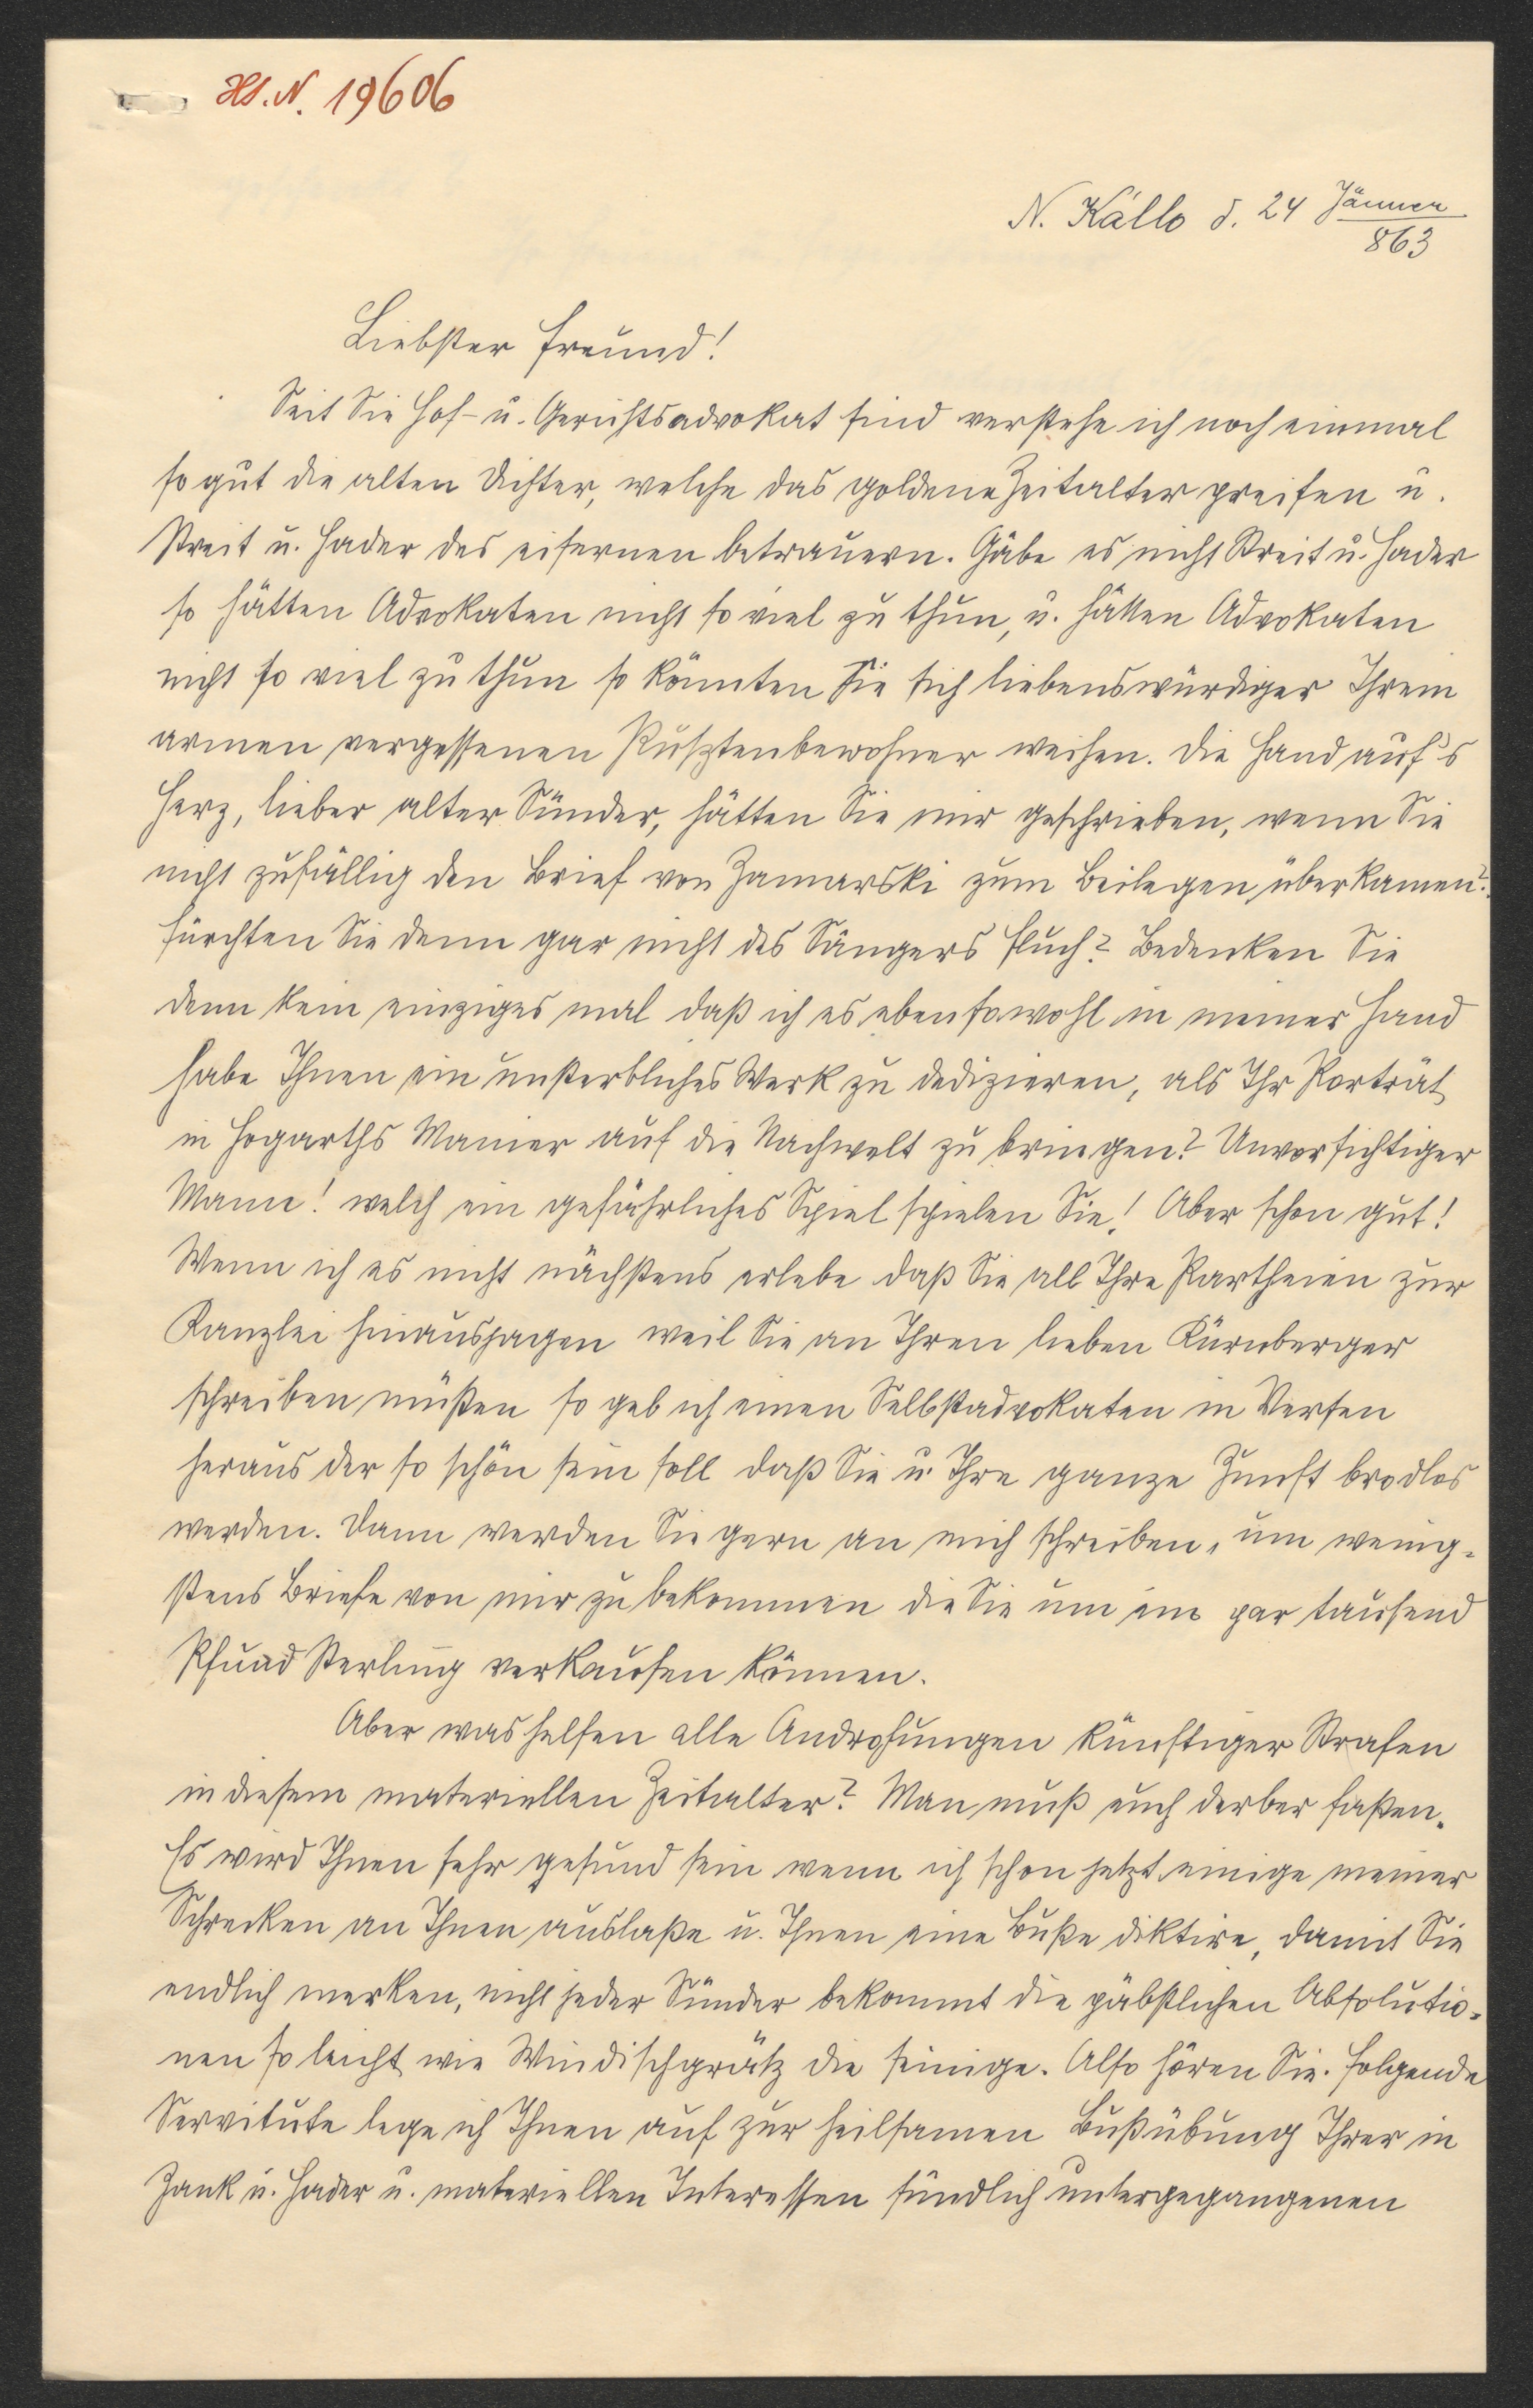 Hs. N. 19606
N. Kálló d. 24 Jänner
863
Liebster Freund!
Seit Sie Hof- u. Gerichtsadvokat sind verstehe ich noch einmal
so gut die alten Dichter, welche das goldene Zeitalter preisen u.
Streit u. Hader des eisernen betrauern. Gäbe es nicht Streit u. Hader
so hätten Advokaten nicht so viel zu thun, u. hätten Advokaten
nicht so viel zu thun so könnten Sie sich liebenswürdiger Ihrem
armen vergessenen Pusztenbewohner weihen. Die Hand auf's
Herz, lieber alter Sünder, hätten Sie mir geschrieben, wenn Sie
nicht zufällig den Brief von Zamarski zum Beilegen überkamen?
Fürchten Sie denn gar nicht des Sängers Fluch? Bedenken Sie
denn kein einziges mal daß ich es ebensowohl in meiner Hand
habe Ihnen ein unsterbliches Werk zu dedizieren, als Ihr Porträt
in Hogarths Manier auf die Nachwelt zu bringen? Unvorsichtiger
Mann! welch ein gefährliches Spiel spielen Sie! Aber schon gut!
Wenn ich es nicht nächstens erlebe daß Sie all Ihre Partheien zur
Kanzlei hinausjagen weil Sie an Ihren lieben Kürnberger
schreiben müßen so geb ich einen Selbstadvokaten in Versen
heraus der so schön sein soll daß Sie u. Ihre ganze Zunft brodlos
werden. Dann werden Sie gern an mich schreiben, um wenig-
stens Briefe von mir zu bekommen die Sie um ein par tausend
Pfund Sterling verkaufen können.
Aber was helfen alle Androhungen künftiger Strafen
in diesem materiellen Zeitalter? Man muß euch derber faßen.
Es wird Ihnen sehr gesund sein wenn ich schon jetzt einige meiner
Schrecken an Ihnen auslaße u. Ihnen eine Buße diktire, damit Sie
endlich merken, nicht jeder Sünder bekommt die päbstlichen Absolutio-
nen so leicht wie Windischgrätz die seinige. Also hören Sie. Folgende
Servitute lege ich Ihnen auf zur heilsamen Bußübung Ihrer in
Zank u. Hader u. materiellen Interessen sündlich untergegangenen